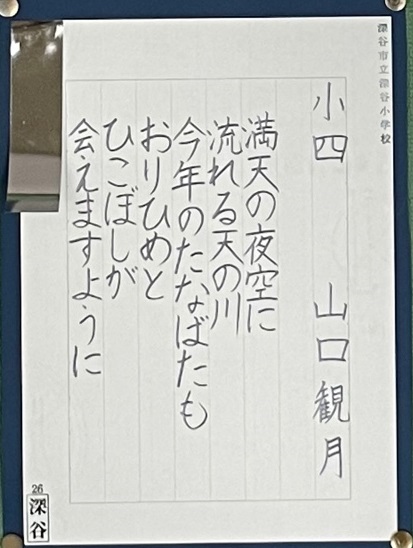 深谷市立深谷小学校
小四 山口観月
満天の夜空に
流れる天の川
今年のたなばたも
おりひめと
ひこぼしが
会えますように
26
深谷